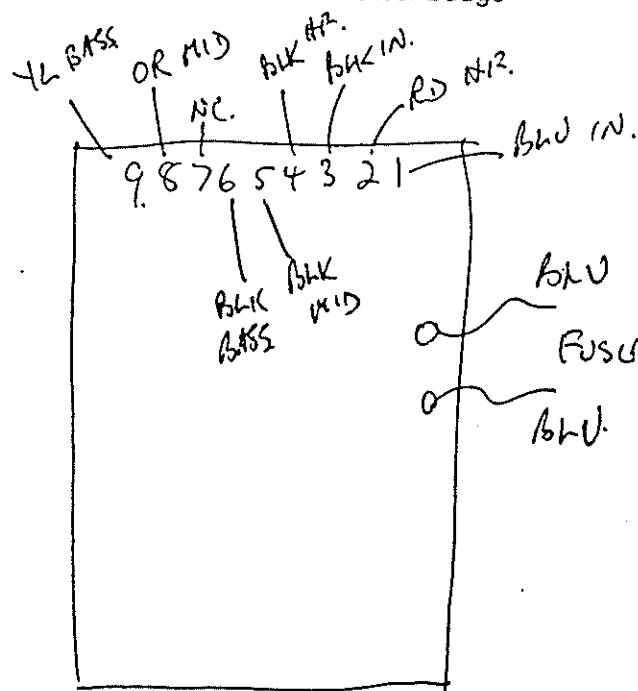 YL BASS
OR MID
NC.
BLK HF.
BLK IN.
RD HF.
BLU IN.
9. 8 7 6 5 4 3 2 1
BLK
BASS
BLK
MID
BLU
FUSE
BLU.